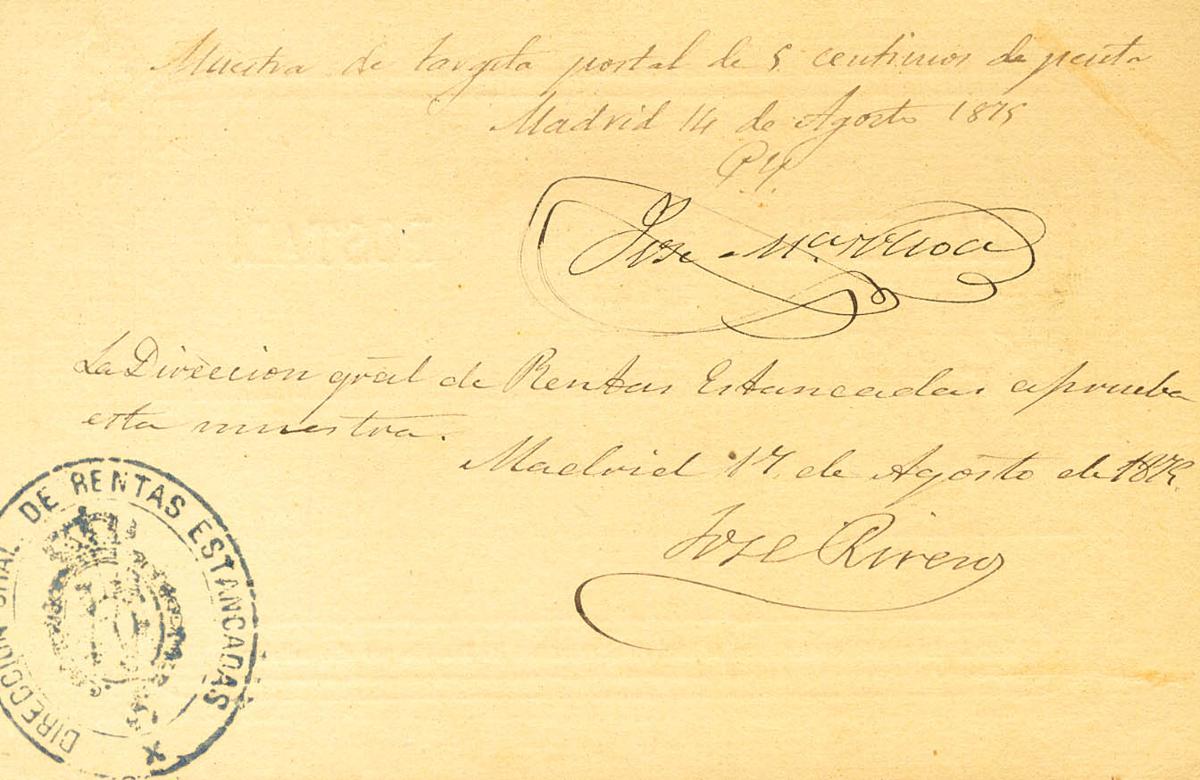 Muestra de targeta postal de 5 centimos de peseta
Madrid 14 de Agosto 1875
P.Y.
Jose Ma
La Direccion gral de Rentas Estancadas aprueba
esta muestra.
Madrid 17 de Agosto de 1875.
Jose Rivero
DIRECCION GRAL DE RENTAS ESTANCADAS